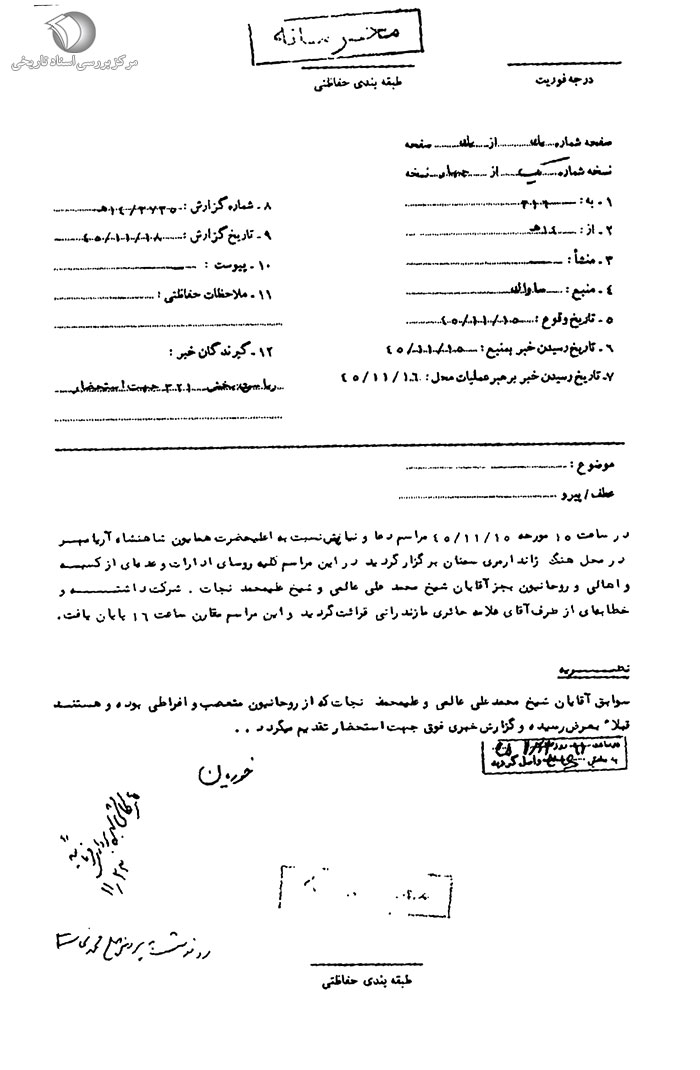 مرکز بررسی اسناد تاریخی
طبقه بندی حفاظتی
درجه فوریت
صفحه شماره یک از یک صفحه
نسخه شماره یک از چهار نسخه
۱ ـ به : ۳۱۶
۲ ـ از : ۱۴ﻫ
۳ ـ منشأ :
۴ ـ منبع : ساواک
۵ ـ تاریخ وقوع : ۴۵/۱۱/۱۵
۶ ـ تاریخ رسیدن خبر بمنبع : ۴۵/۱۱/۱۵
۷ ـ تاریخ رسیدن خبر برهبر عملیات محل : ۴۵/۱۱/۱۶
۸ ـ شماره گزارش : ۱۴/۳۷۳۵ﻫ
۹ ـ تاریخ گزارش : ۴۵/۱۱/۱۸
۱۰ ـ پیوست :
۱۱ ـ ملاحظات حفاظتی :
۱۲ ـ گیرندگان خبر :
ریاست بخش ۳۲۱ جهت استحضار
موضوع :
عطف/پیرو
در ساعت ۱۵ مورخه ۴۵/۱۱/۱۵ مراسم دعا و نیایش نسبت به اعلیحضرت همایون شاهنشاه آریامهر
در محل هنگ ژاندارمری سمنان برگزار گردید در این مراسم کلیه روسای ادارات و عده‌ای از کسبه
و اهالی و روحانیون بجز آقایان شیخ محمد علی عالمی و شیخ علیمحمد نجات . شرکت داشته و
خطابه‌ای از طرف آقای علامه حائری مازندرانی قرائت گردید و این مراسم مقارن ساعت ۱۶ پایان یافت.
نظریه
سوابق آقایان شیخ محمد علی عالمی و علیمحمد نجات که از روحانیون متعصب و افراطی بوده و هستند
قبلاً بعرض رسیده و گزارش خبری فوق جهت استحضار تقدیم میگردد . .
واصل گردید
۱۱/۲۳
طبقه بندی حفاظتی